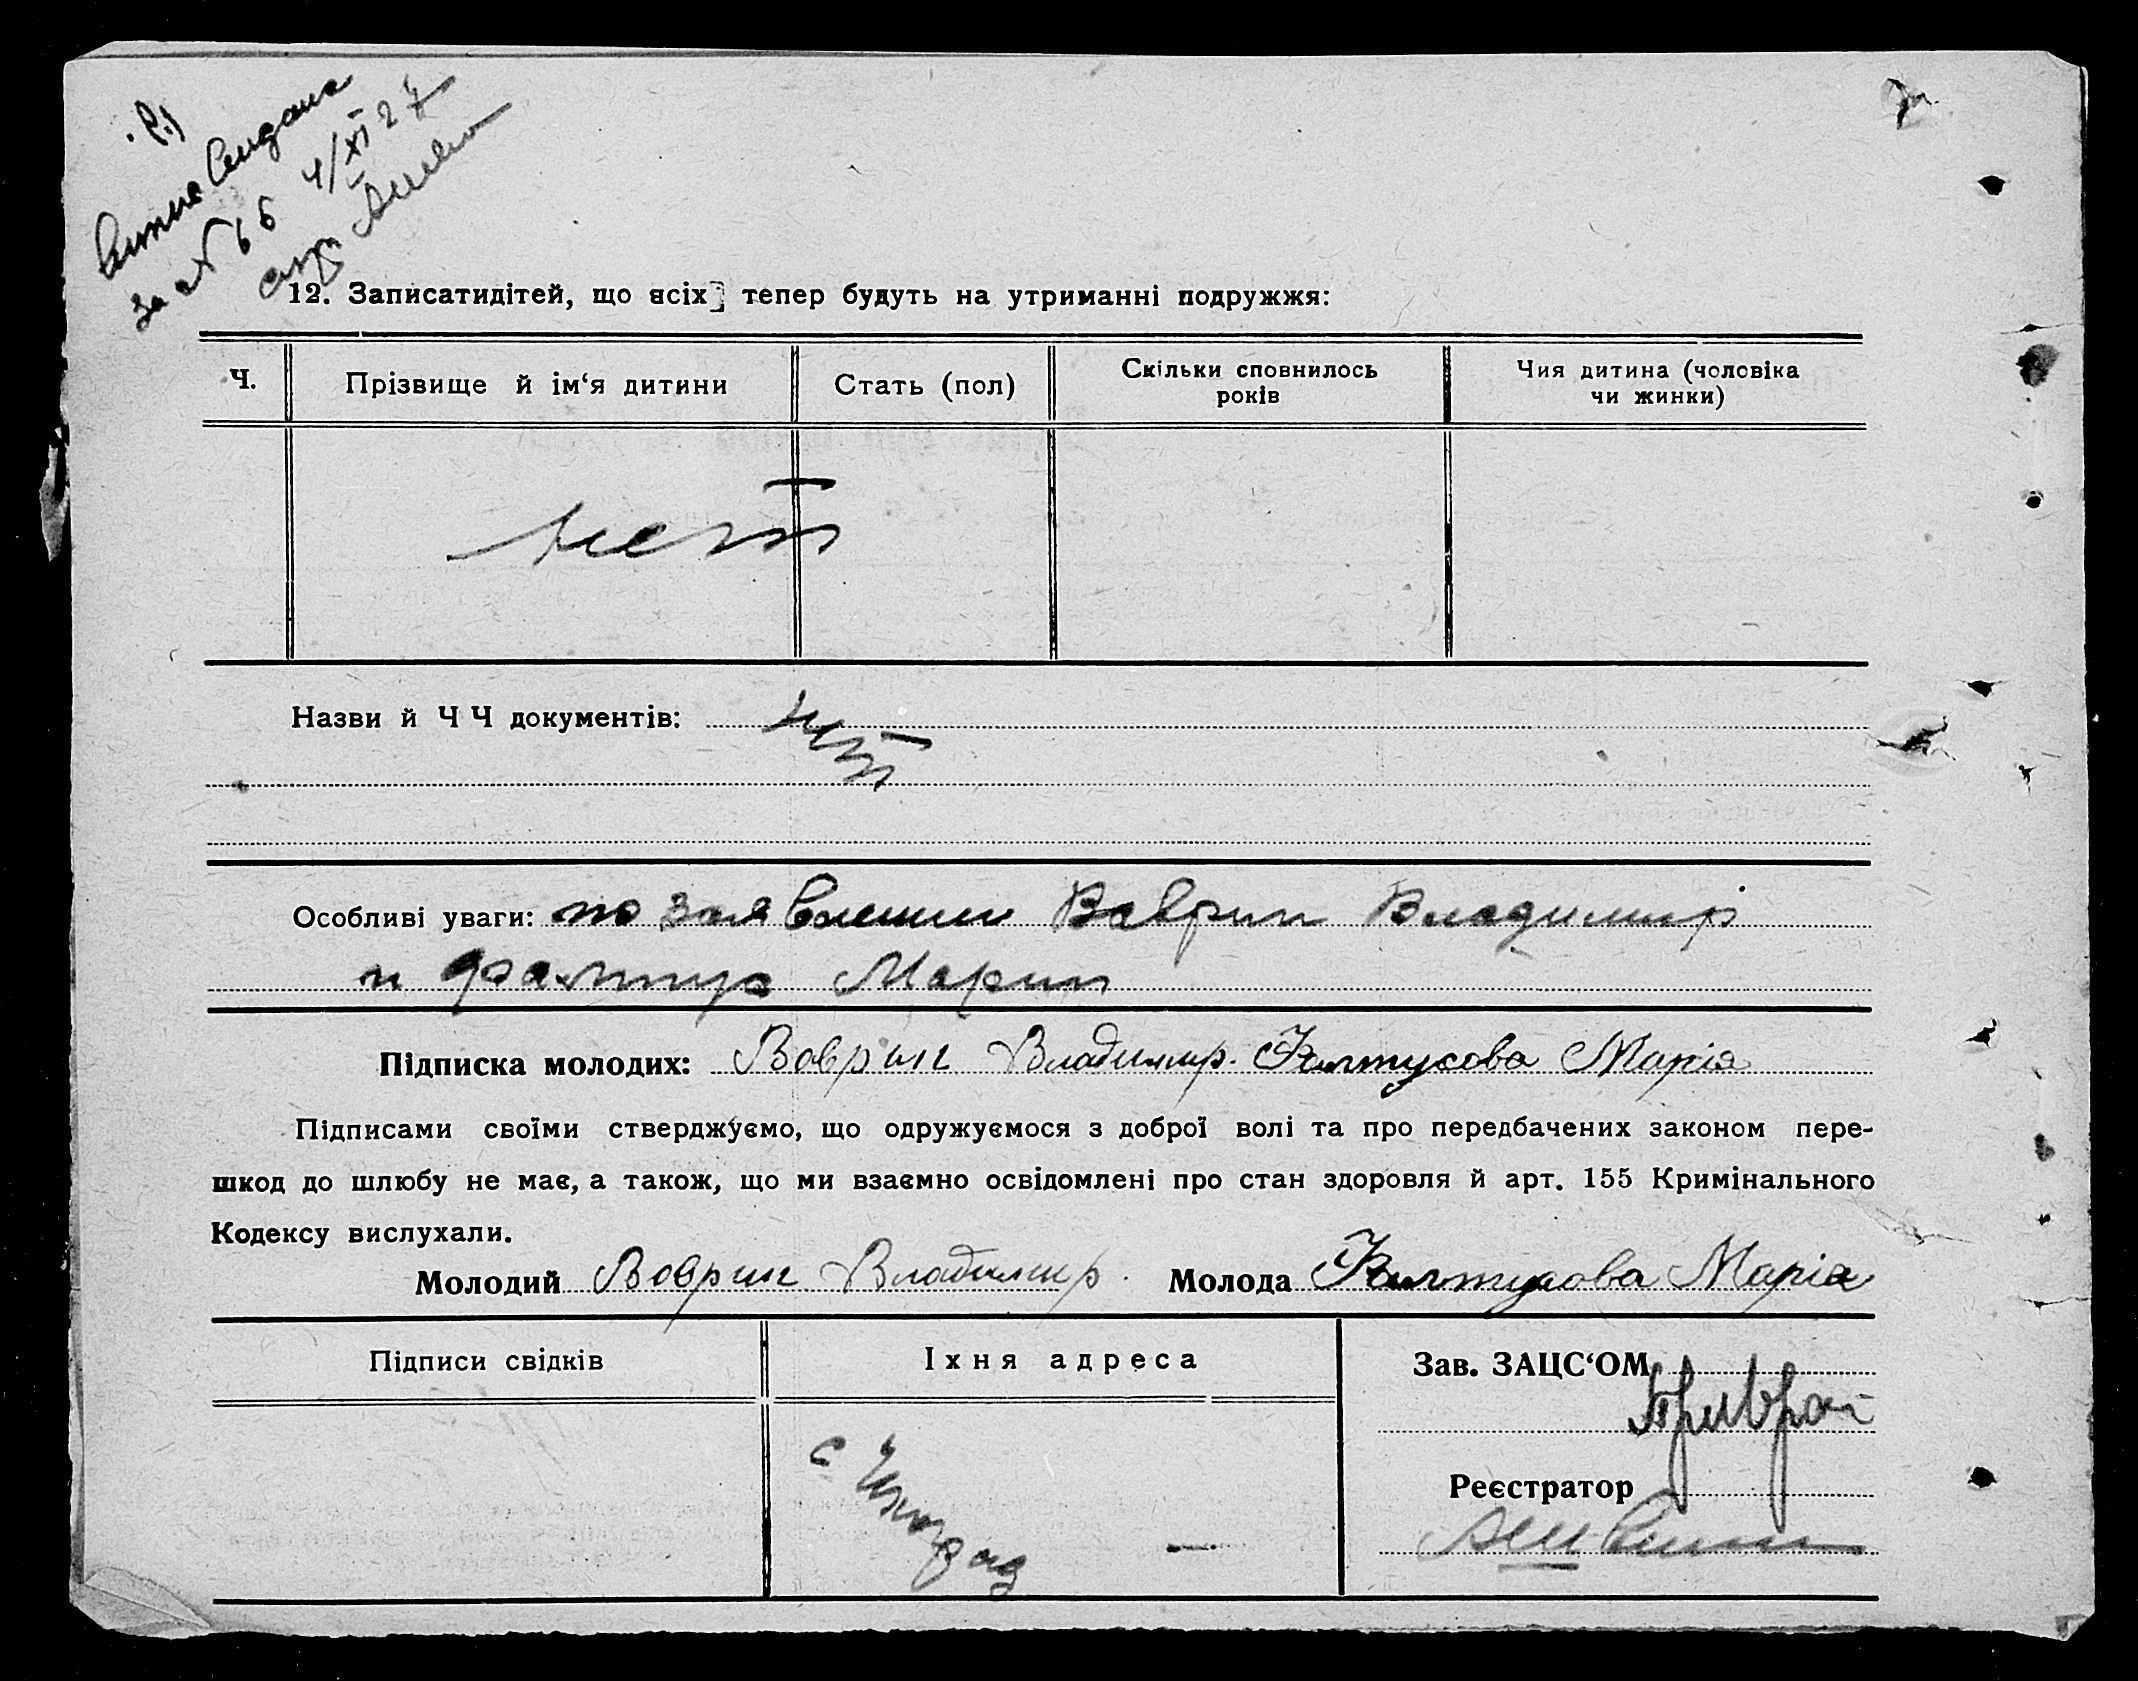 за № 66 4/XI 27
12. Записатидітей, що всіх тепер будуть на утриманні подружжя:
Ч.
Прізвище й ім‘я дитини
Стать (пол)
Скільки сповнилось
років
Чия дитина (чоловіка
чи жинки)
нет
Назви й Ч Ч документів: нет
Особливі уваги: по заявлении Ваврин Владимир
и Фалтус Марии
Підписка молодих: Воврин Владимир. Фалтусова Марія
Підписами своїми стверджуємо, що одружуємося з доброї волі та про передбачених законом пере-
шкод до шлюбу не має, а також, що ми взаємно освідомлені про стан здоровля й арт. 155 Кримінального
Кодексу вислухали.
Молодий Воврин Владимир. Молода Фалтусова Марія
Підписи свідків
Іхня адреса
Зав. ЗАЦС‘ОМ
с
Реєстратор